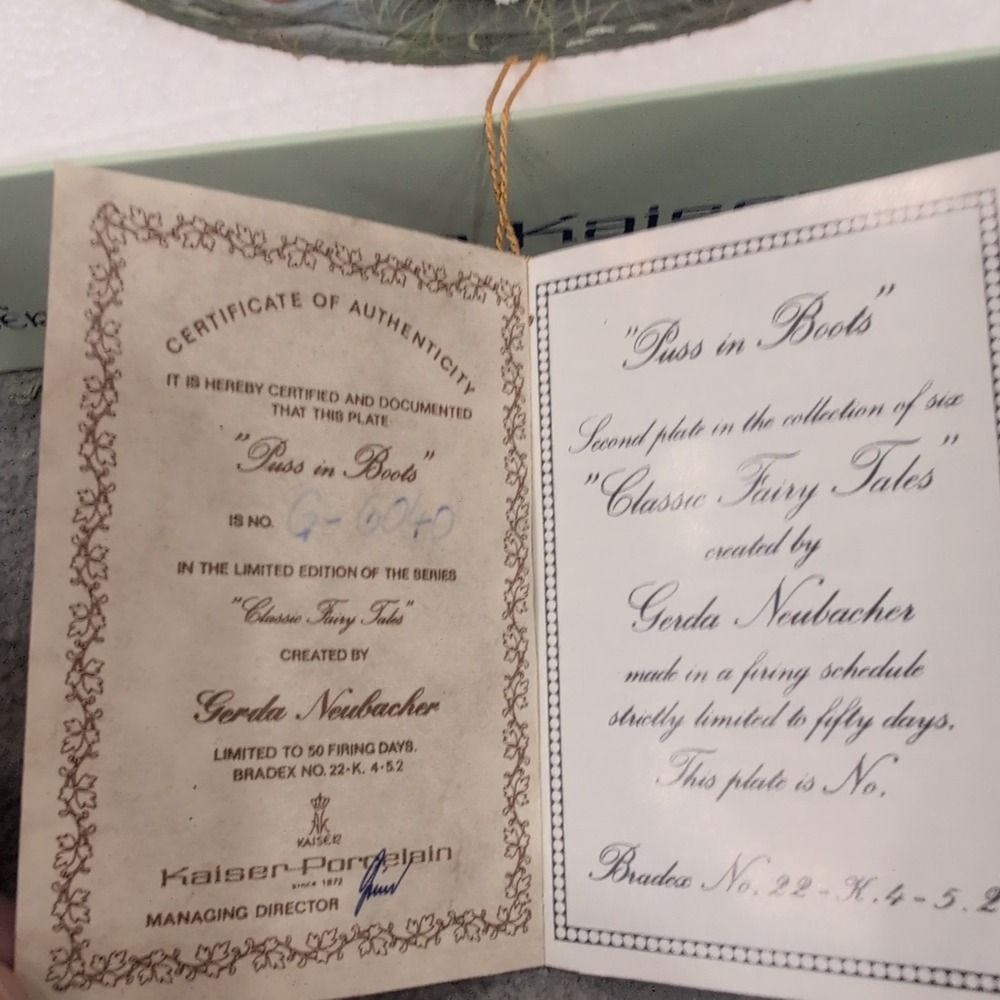 Kaiser
CERTIFICATE OF AUTHENTICITY
IT IS HEREBY CERTIFIED AND DOCUMENTED
THAT THIS PLATE
"Puss in Boots"
IS NO. G-6040
IN THE LIMITED EDITION OF THE SERIES
"Classic Fairy Tales"
CREATED BY
Gerda Neubacher
LIMITED TO 50 FIRING DAYS.
BRADEX NO. 22-K. 4-5.2
KAISER
Kaiser-Porcelain
SINCE 1872
MANAGING DIRECTOR
"Puss in Boots"
Second plate in the collection of six
"Classic Fairy Tales"
created by
Gerda Neubacher
made in a firing schedule
strictly limited to fifty days.
This plate is No.
Bradex No. 22-K.4-5.2